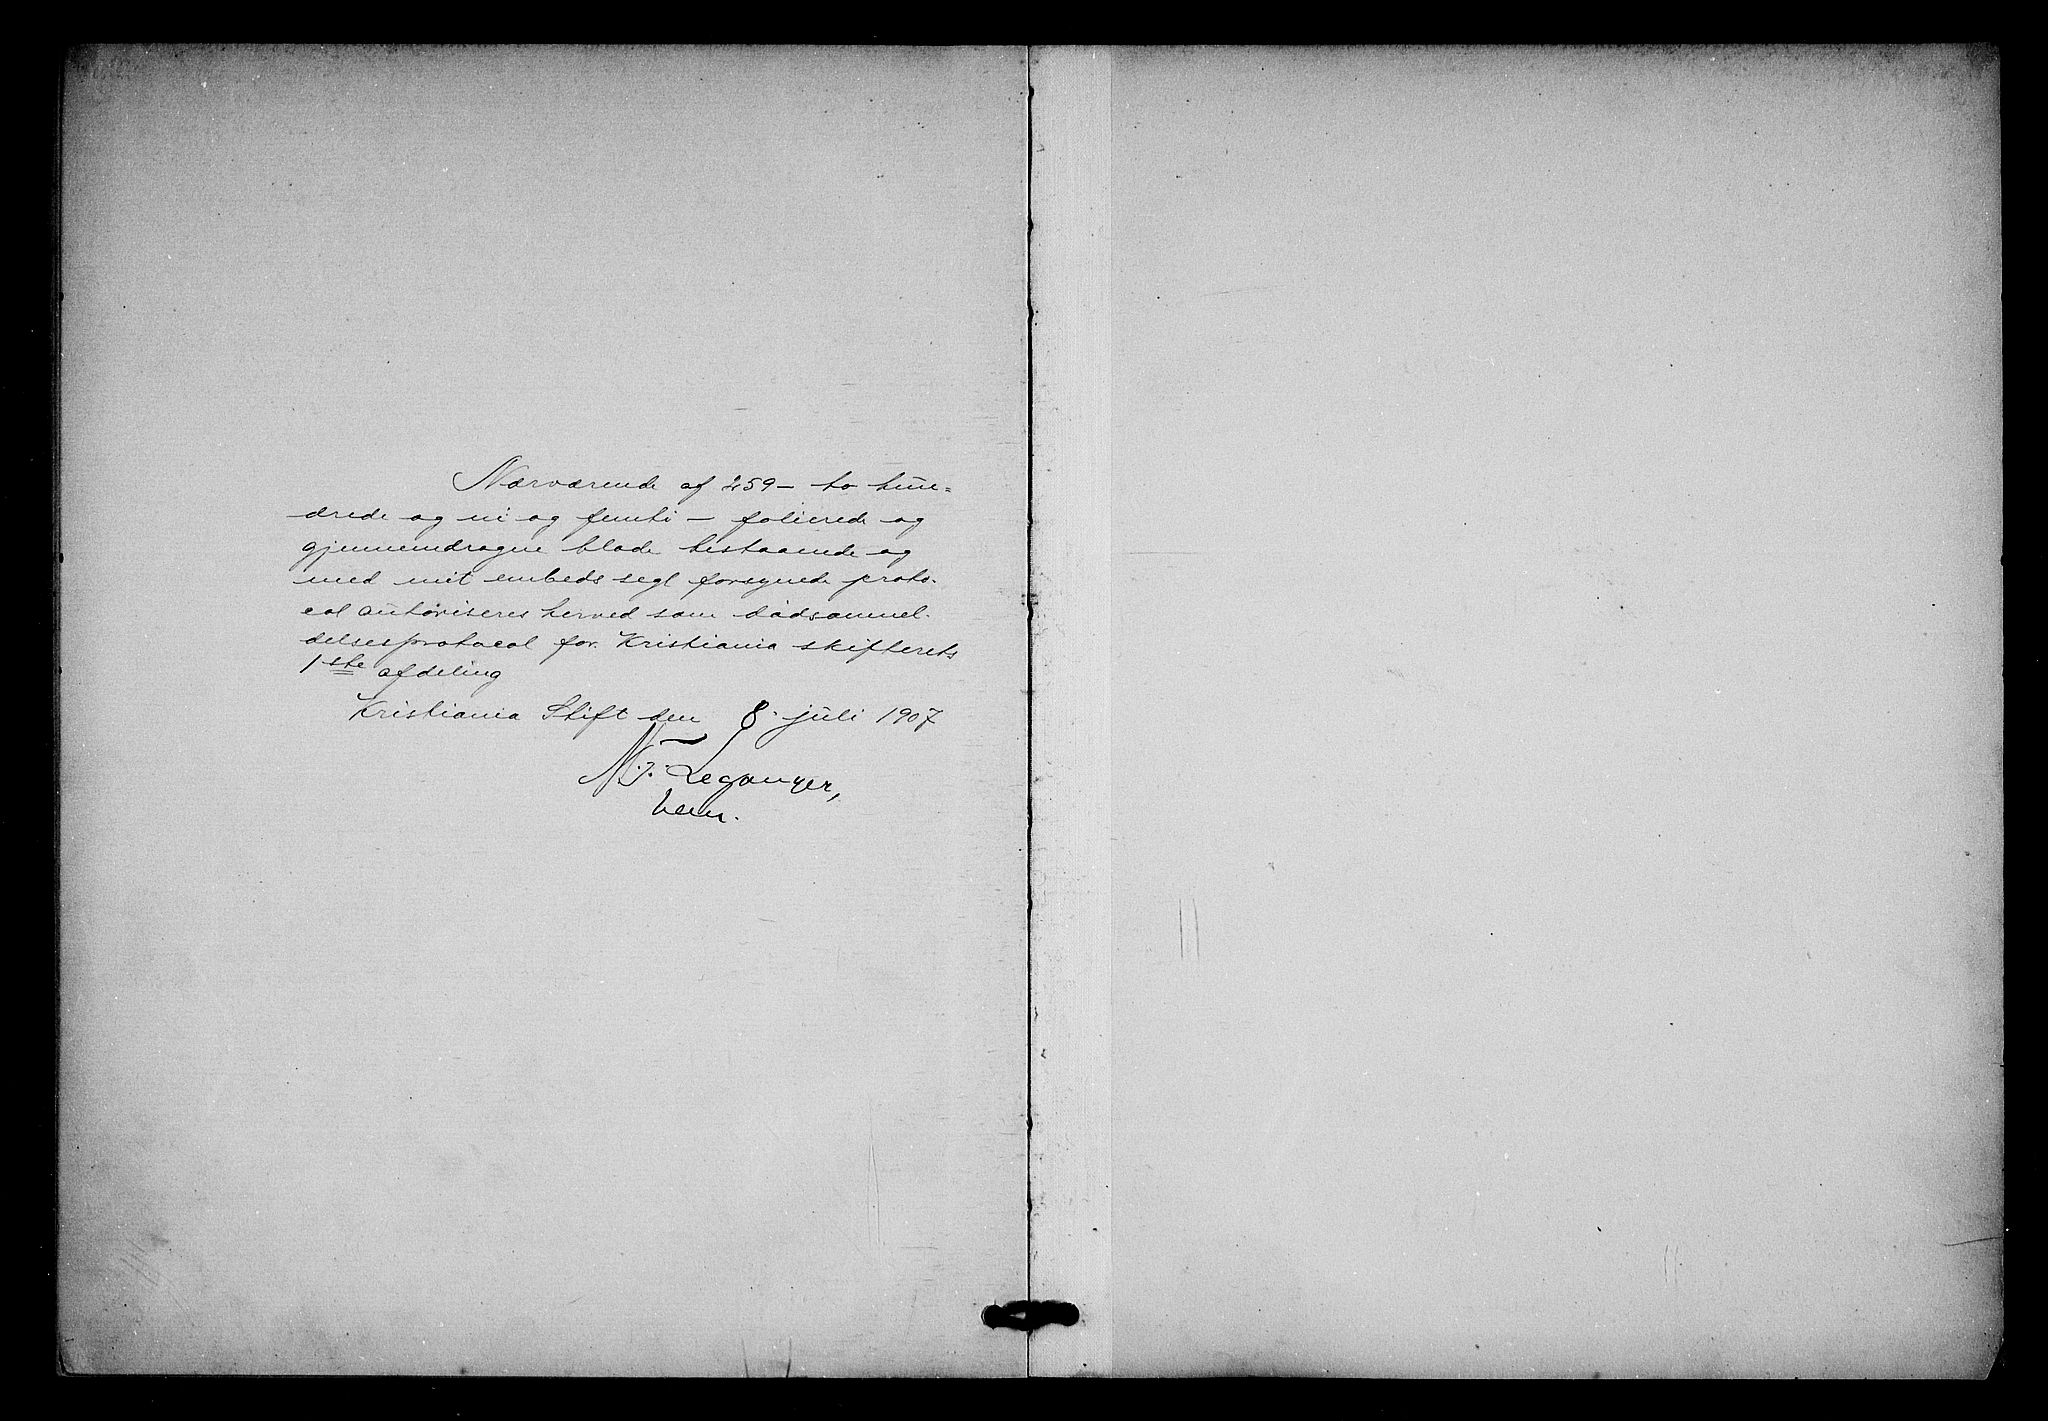 Nærværende af 259 – to hun=
drede og ni og femti – folierede og
gjennemdragne blade bestaaende og
med mit embeds segl forsynede proto-
col autoriseres herved som dødsanmel-
delsesprotocol for Kristiania skifterets
1ste afdeling
Kristiania Stift den 8. juli 1907
Leganger,